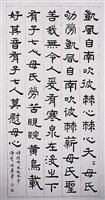 凱風自南吹彼棘心棘心夭夭母氏
劬勞凱風自南吹彼棘薪母氏聖
善我無令人爰有寒泉在浚之下
有子七人母氏勞苦睍睆黃鳥載
好其音有子七人莫慰母心